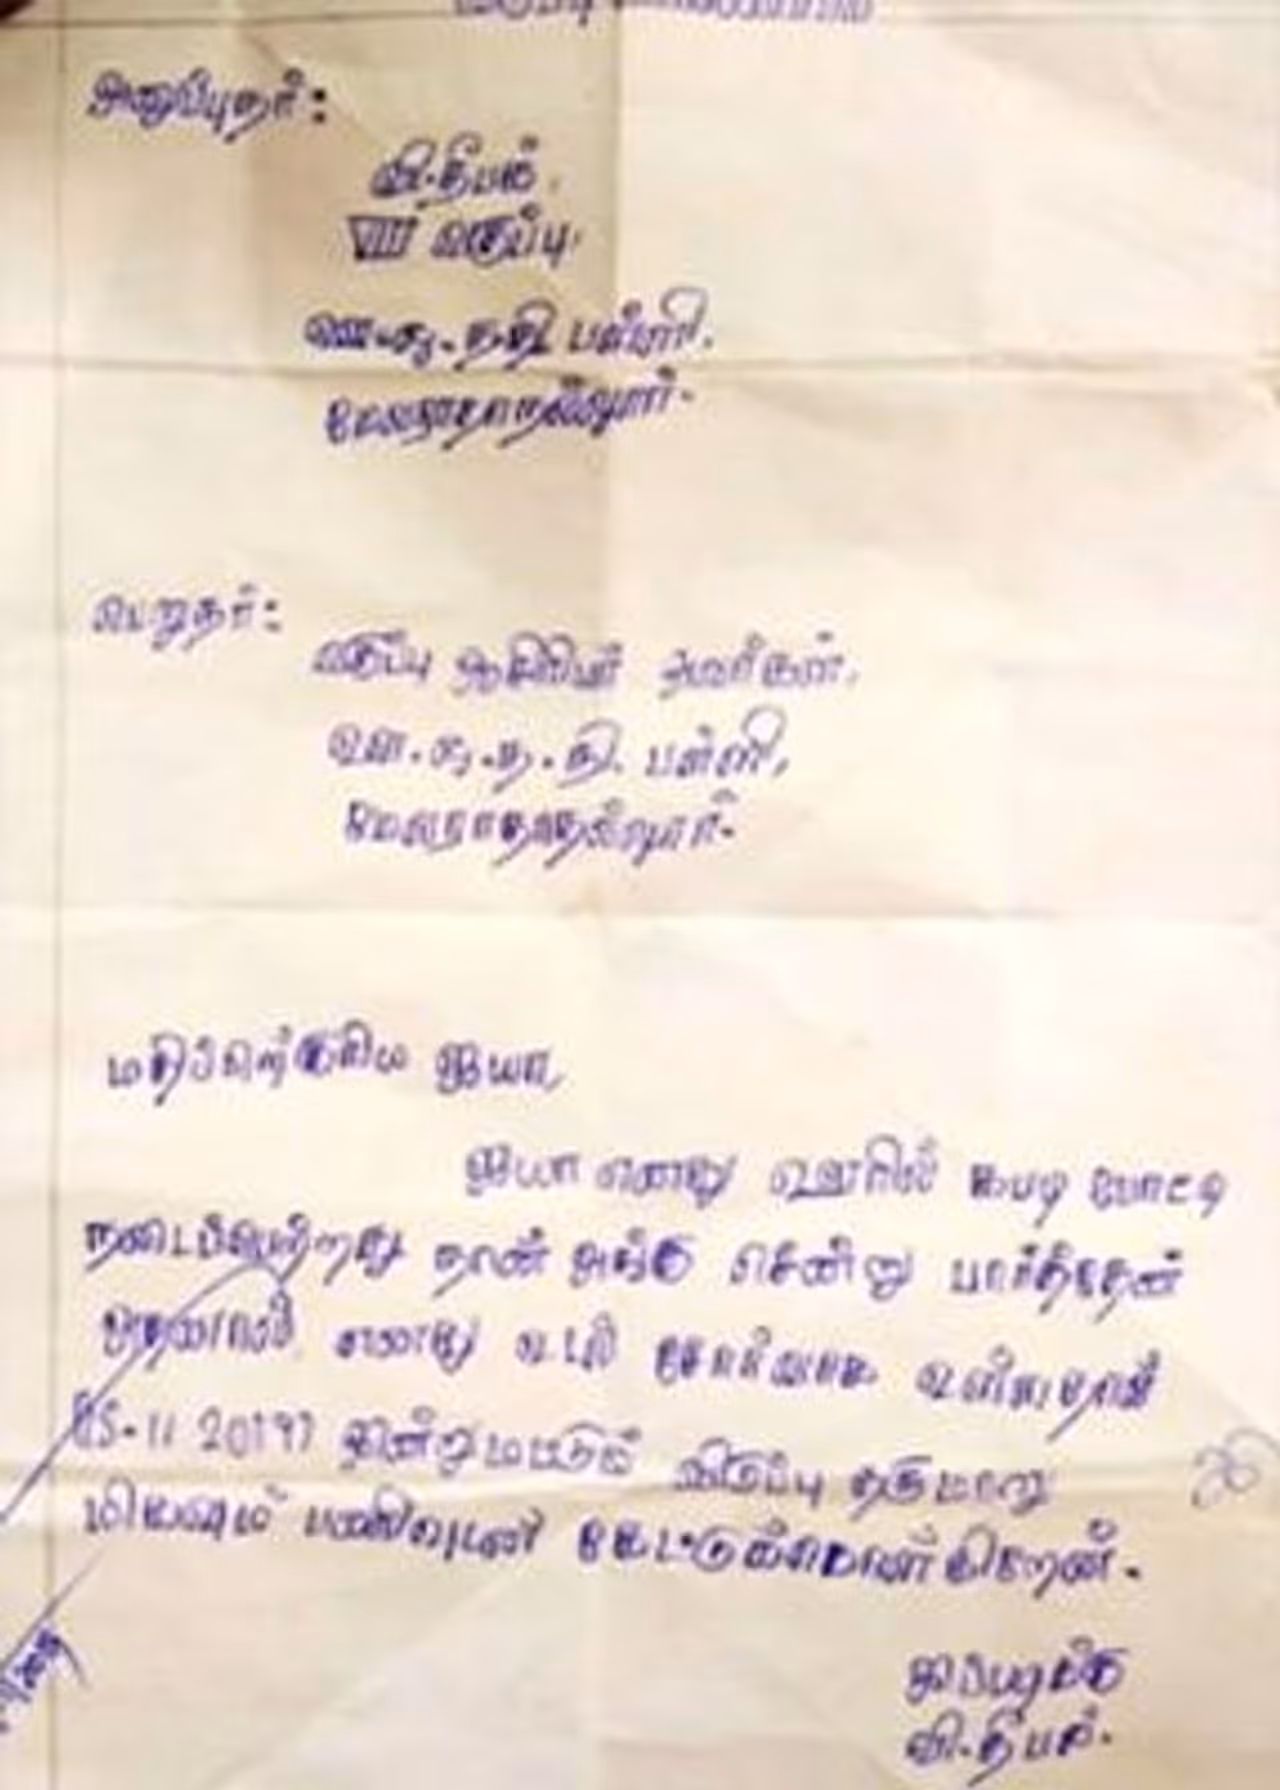 விடுப்பு விண்ணப்பம்
அனுப்புதர்:
வி.தீபக்.
VIII வகுப்பு,
ஊ.ஒ.ந.நி பள்ளி.
மேலராதாநல்லூர்.
பெறுதர்:
வகுப்பு ஆசிரியர் அவர்கள்,
ஊ.ஒ.ந.நி. பள்ளி,
மேலராதாநல்லூர்.
மதிப்பிற்குரிய ஐயா,
ஐயா எனது ஊரில் கபடி போட்டி
நடைபெறுகிறது நான் அங்கு சென்று பார்த்தேன்
அதனால் எனது உடல் சோர்வாக உள்ளதால்
இன்றுமட்டும் விடுப்பு தருமாறு
மிகவும் பணிவுடன் கேட்டுக்கொள்கிறேன்.
இப்படிக்கு
வி.தீபக்.